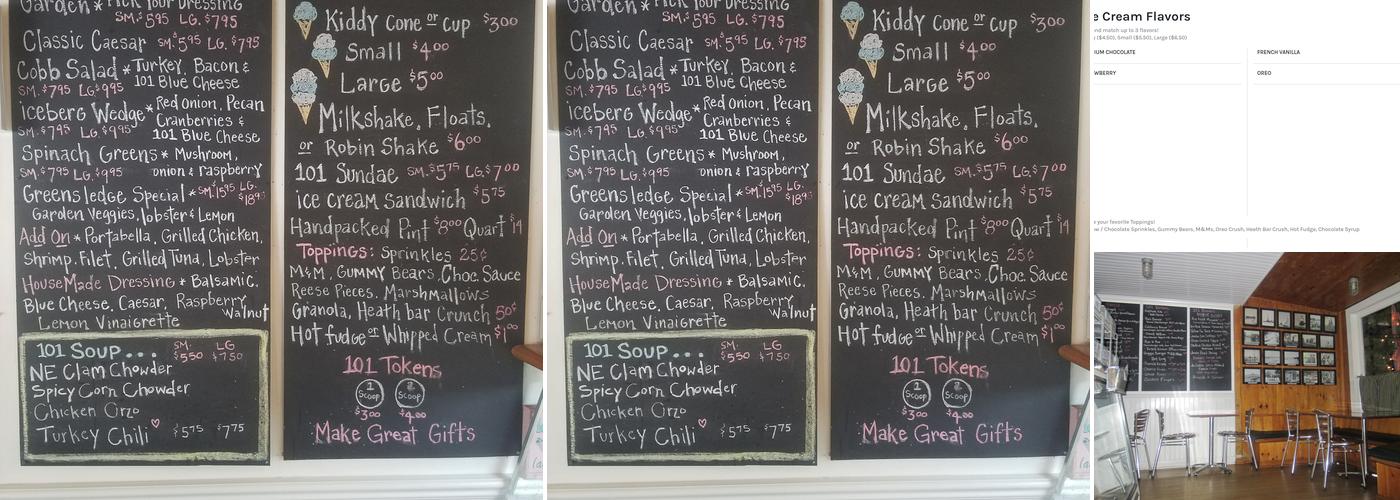 Garden * Pick Your Dressing
SM. $5.95 LG. $7.95
Classic Caesar SM. $5.95 LG. $7.95
Cobb Salad * Turkey, Bacon &
SM. $7.95 LG $9.95 101 Blue Cheese
iceberg Wedge * Red Onion, Pecan
SM. $7.95 LG. $9.95 Cranberries &
101 Blue Cheese
Spinach Greens * Mushroom,
SM. $7.95 LG. $9.95 onion & raspberry
Greensledge Special * SM. $15.95 LG.
Garden Veggies, lobster & Lemon
Add On * Portabella, Grilled Chicken,
Shrimp. Filet, Grilled Tuna, Lobster
HouseMade Dressing * Balsamic,
Blue Cheese, Caesar, Raspberry
Walnut
Lemon Vinaigrette
101 Soup... SM. $5.50 LG $7.50
NE Clam Chowder
Spicy Corn Chowder
Chicken Orzo
Turkey Chili $5.75 $7.75
Kiddy Cone or Cup $3.00
Small $4.00
Large $5.00
Milkshake, Floats,
or Robin Shake $6.00
101 Sundae SM. $5.75 LG. $7.00
ice cream Sandwich $5.75
Handpacked Pint $8.00 Quart $14
Toppings: Sprinkles 25¢
M&M, Gummy Bears, Choc. Sauce
Reese Pieces, Marshmallows
Granola, Heath bar Crunch 50¢
Hot fudge or Whipped Cream $1.00
101 Tokens
1 Scoop 2 Scoop
$3.00 $4.00
Make Great Gifts
Garden * Pick Your Dressing
SM. $5.95 LG. $7.95
Classic Caesar SM. $5.95 LG. $7.95
Cobb Salad * Turkey, Bacon &
SM. $7.95 LG $9.95 101 Blue Cheese
iceberg Wedge * Red Onion, Pecan
SM. $7.95 LG. $9.95 Cranberries &
101 Blue Cheese
Spinach Greens * Mushroom,
SM. $7.95 LG. $9.95 onion & raspberry
Greensledge Special * SM. $15.95 LG.
Garden Veggies, lobster & Lemon
Add On * Portabella, Grilled Chicken,
Shrimp. Filet, Grilled Tuna, Lobster
HouseMade Dressing * Balsamic,
Blue Cheese, Caesar, Raspberry
Walnut
Lemon Vinaigrette
101 Soup... SM. $5.50 LG $7.50
NE Clam Chowder
Spicy Corn Chowder
Chicken Orzo
Turkey Chili $5.75 $7.75
Kiddy Cone or Cup $3.00
Small $4.00
Large $5.00
Milkshake, Floats,
or Robin Shake $6.00
101 Sundae SM. $5.75 LG. $7.00
ice cream Sandwich $5.75
Handpacked Pint $8.00 Quart $14
Toppings: Sprinkles 25¢
M&M, Gummy Bears, Choc. Sauce
Reese Pieces, Marshmallows
Granola, Heath bar Crunch 50¢
Hot fudge or Whipped Cream $1.00
101 Tokens
1 Scoop 2 Scoop
$3.00 $4.00
Make Great Gifts
e Cream Flavors
nd match up to 3 flavors!
($4.50), Small ($5.50), Large ($6.50)
IUM CHOCOLATE FRENCH VANILLA
WBERRY OREO
e your favorite Toppings!
/ Chocolate Sprinkles, Gummy Bears, M&Ms, Oreo Crush, Heath Bar Crush, Hot Fudge, Chocolate Syrup